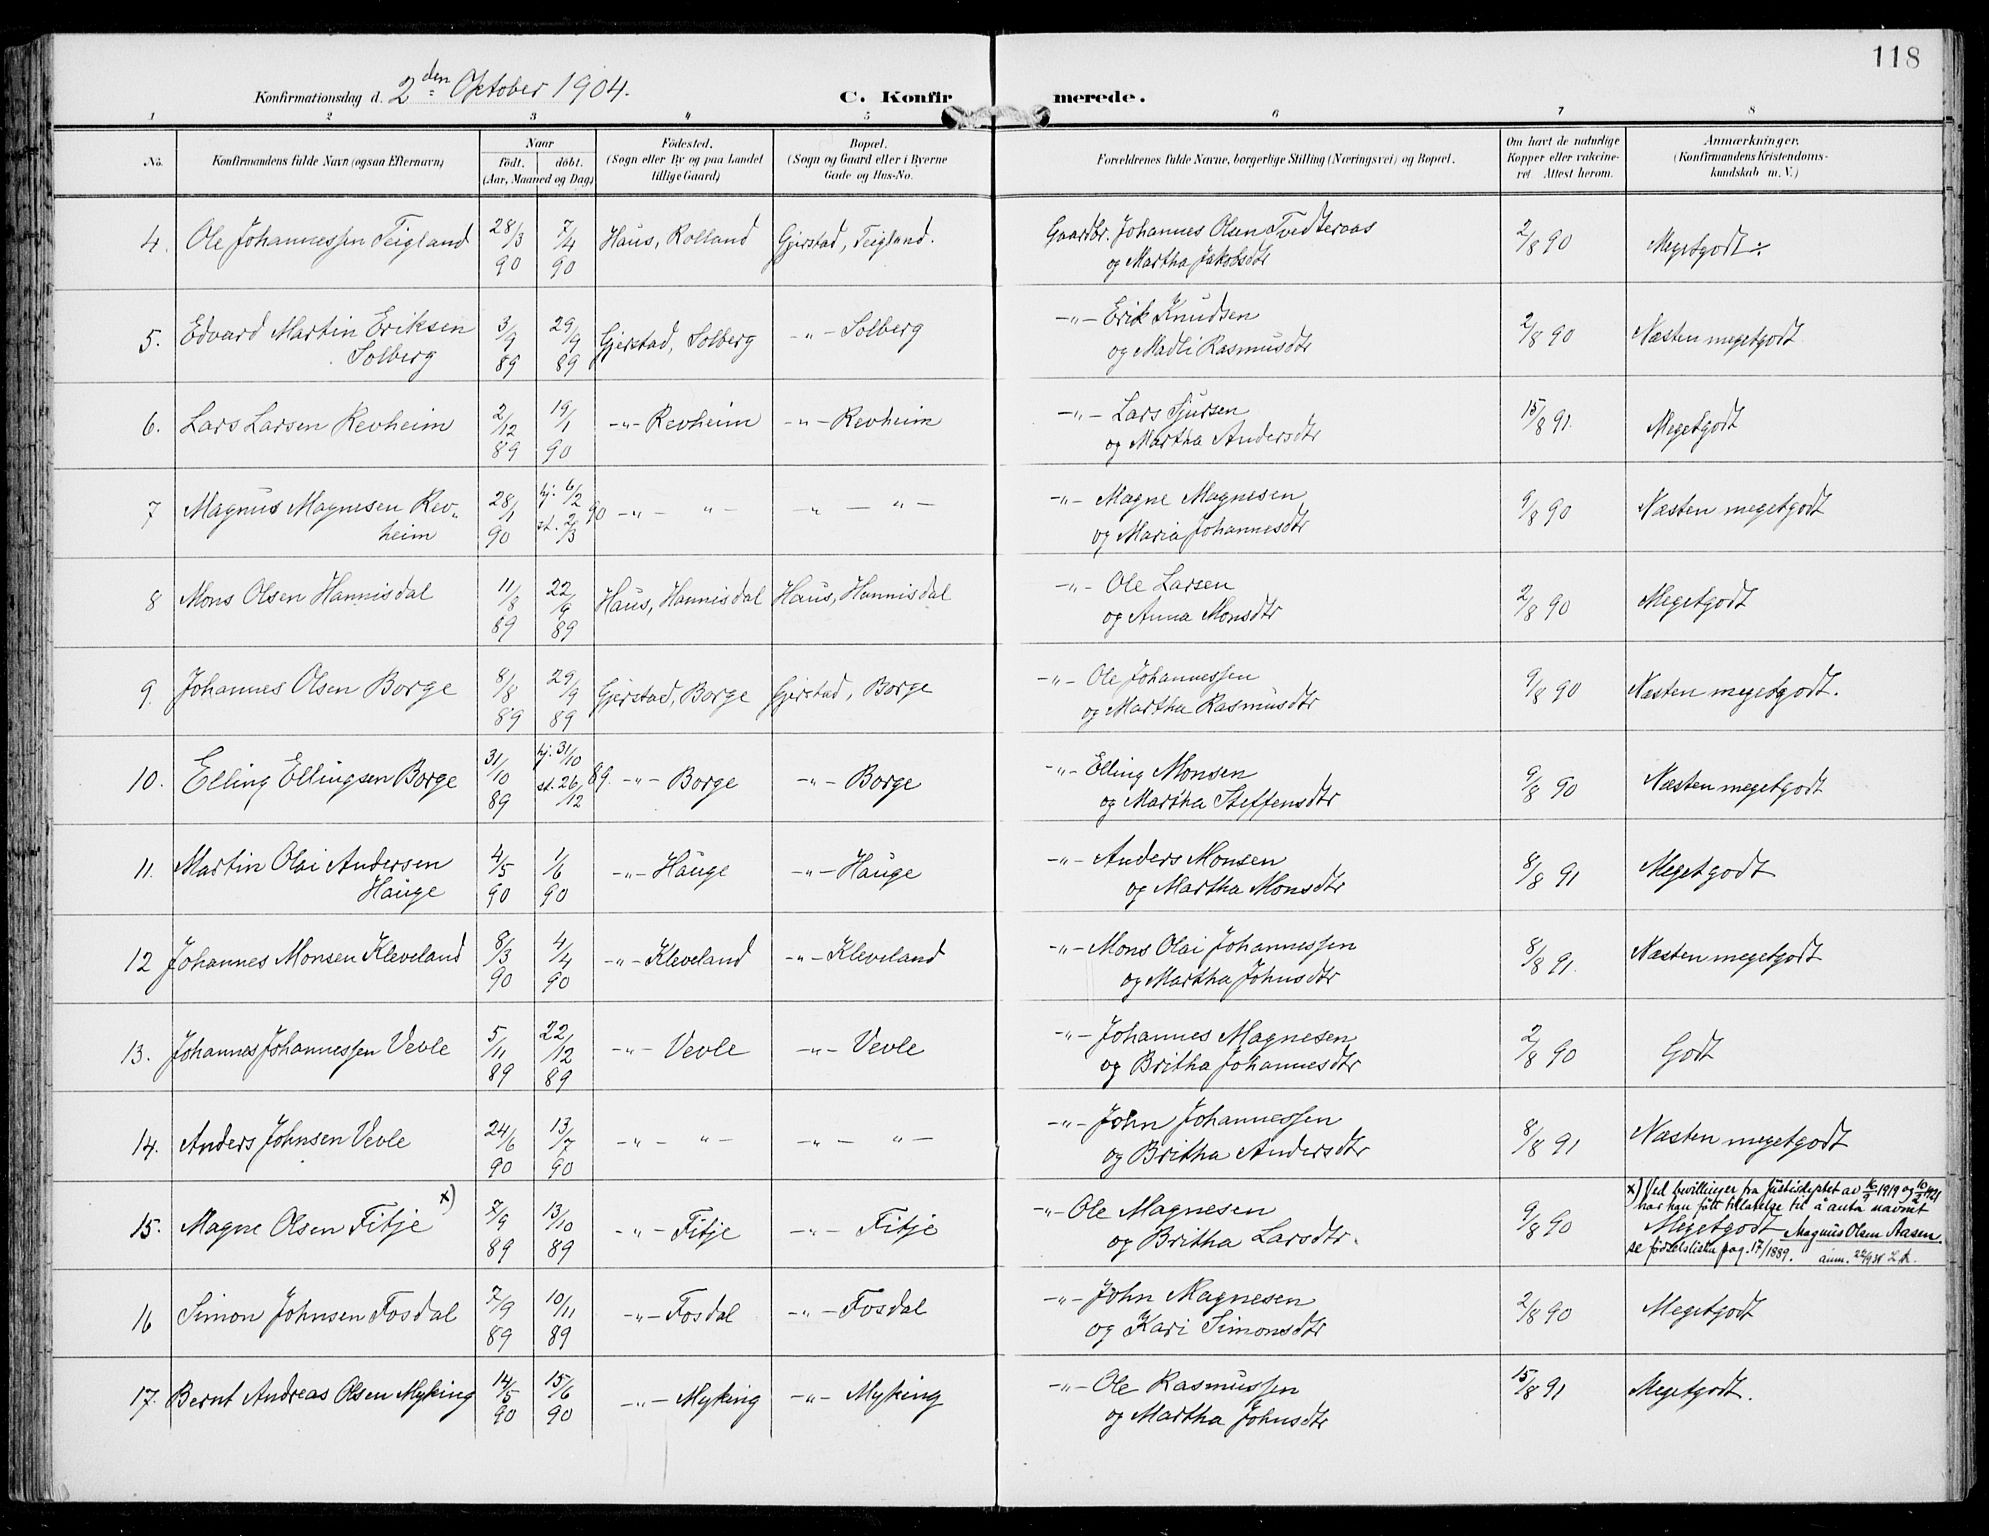 118
Konfirmationsdag d. 2den Oktober 1904.
C. Konfirmerede.
1 2 3 4 5 6 7 8
No. Konfirmandens fulde Navn (ogsaa Efternavn) Naar født. døbt. (Aar, Maaned og Dag) Fødested. (Sogn eller By og paa Landet tillige Gaard) Bopæl. (Sogn og Gaard eller i Byerne Gade og Hus-No. Forældrenes fulde Navne, borgerlige Stilling (Næringsvei) og Bopæl. Om havt de naturlige Kopper eller vakcineret Attest herom. Anmærkninger. (Konfirmandens Kristendomskundskab m. V.)
4. Ole Johannessen Teigland 28/3 90 7/4 90 Haus, Rolland Gjerstad, Teigland. Gaardbr. Johannes Olsen Tvedteraas 2/8 90 Megetgodt ÷
og Martha Jakobsdtr
5. Edvard Martin Eriksen 3/9 89 29/9 89 Gjerstad, Solberg -"- Solberg -"- Erik Knudsen 2/8 90 Næsten megetgodt
Solberg og Madli Rasmusdtr
6. Lars Larsen Revheim 2/12 89 19/1 90 -"- Revheim -"- Revheim -"- Lars Sjursen 15/8 91. Megetgodt
og Martha Andersdtr
7 Magnus Magnesen Rev- 28/1 90 hj. 6/2 st. 2/3 90 -"- "- " - "- -"- Magne Magnesen 9/8 90 Næsten megetgodt
heim og Maria Johannesdtr
8 Mons Olsen Hannisdal 11/8 89 22/9 89 Haus, Hannisdal Haus, Hannisdal -"- Ole Larsen 2/8 90 Megetgodt
og Anna Monsdtr
9. Johannes Olsen Borge 8/8 89 29/9 89 Gjerstad, Borge Gjerstad, Borge -"- Ole Johannessen 9/8 90 Næsten megetgodt.
og Martha Rasmusdtr
10. Elling Ellingsen Borge 31/10 89 hj. 31/10 st. 26/12 89. -"- Borge -"- Borge -"- Elling Monsen 9/8 90 Næsten megetgodt
og Martha Steffensdtr
11. Martin Olai Andersen 4/5 90 1/6 90 -"- Hauge -"- Hauge -"- Anders Monsen 8/8 91 Megetgodt
Hauge og Martha Monsdtr
12 Johannes Monsen Kleveland 8/3 90 4/4 90 -"- Kleveland -"- Kleveland -"- Mons Olai Johannessen 8/8 91. Næsten megetgodt
og Martha Johnsdtr
13. Johannes Johannessen Vevle 5/11 89 22/12 89 -"- Vevle -"- Vevle -"- Johannes Magnesen 2/8 90 Godt
og Britha Johannesdtr
14. Anders Johnsen Vevle 24/6 90 13/7 90 -"- "- -"- "- -"- John Johannessen 8/8 91 Næsten megetgodt
og Britha Andersdtr
15. Magne Olsen Fitje x) 7/9 89 13/10 89 -"- Fitje -"- Fitje -"- Ole Magnesen 9/8 90
og Britha Larsdtr.
x) Ved bevillinger fra Justisdeptet av 16/9 1919 og 10/2 1921
har han fått tillatelse til å anta navnet
Megetgodt Magnus Olsen Aasen.
se fødselslisten pag. 17/1889. anm. 22/9 38
16 Simon Johnsen Fosdal 7/9 89 10/11 89 -"- Fosdal -"- Fosdal -"- John Magnesen 2/8 90 Megetgodt
og Kari Simonsdtr
17. Bernt Andreas Olsen Myking 14/5 90 15/6 90 -"- Myking -"- Myking -"- Ole Rasmussen 15/8 91 Megetgodt.
og Martha Johnsdtr